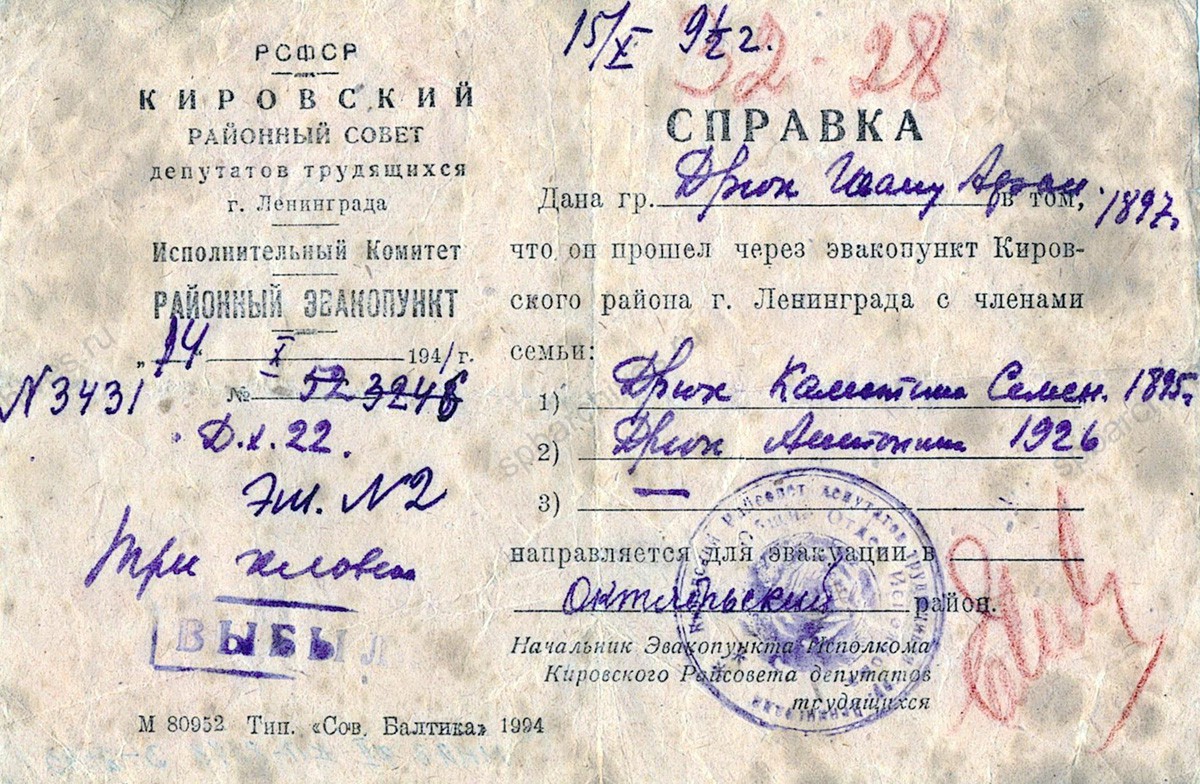 РСФСР
КИРОВСКИЙ
РАЙОННЫЙ СОВЕТ
депутатов трудящихся
г. Ленинграда
Исполнительный Комитет
РАЙОННЫЙ ЭВАКОПУНКТ
„14" X 1941 г.
N 3431 № 52 3246
Д.х. 22.
Эш. N 2
три человека
ВЫБЫЛ
М 80952 Тип. «Сов. Балтика» 1994
15/X 9 г.
32-28
СПРАВКА
Дана гр. Дрюк Ивану Адам. в том, 1897г
что он прошел через эвакопункт Киров-
ского района г. Ленинграда с членами
семьи:
1) Дрюк Семен. 1895г
2) Дрюк Антонина 1926
3) —
направляется для эвакуации в
Октябрьский район.
Начальник Эвакопункта Исполкома
Кировского Райсовета депутатов
трудящихся